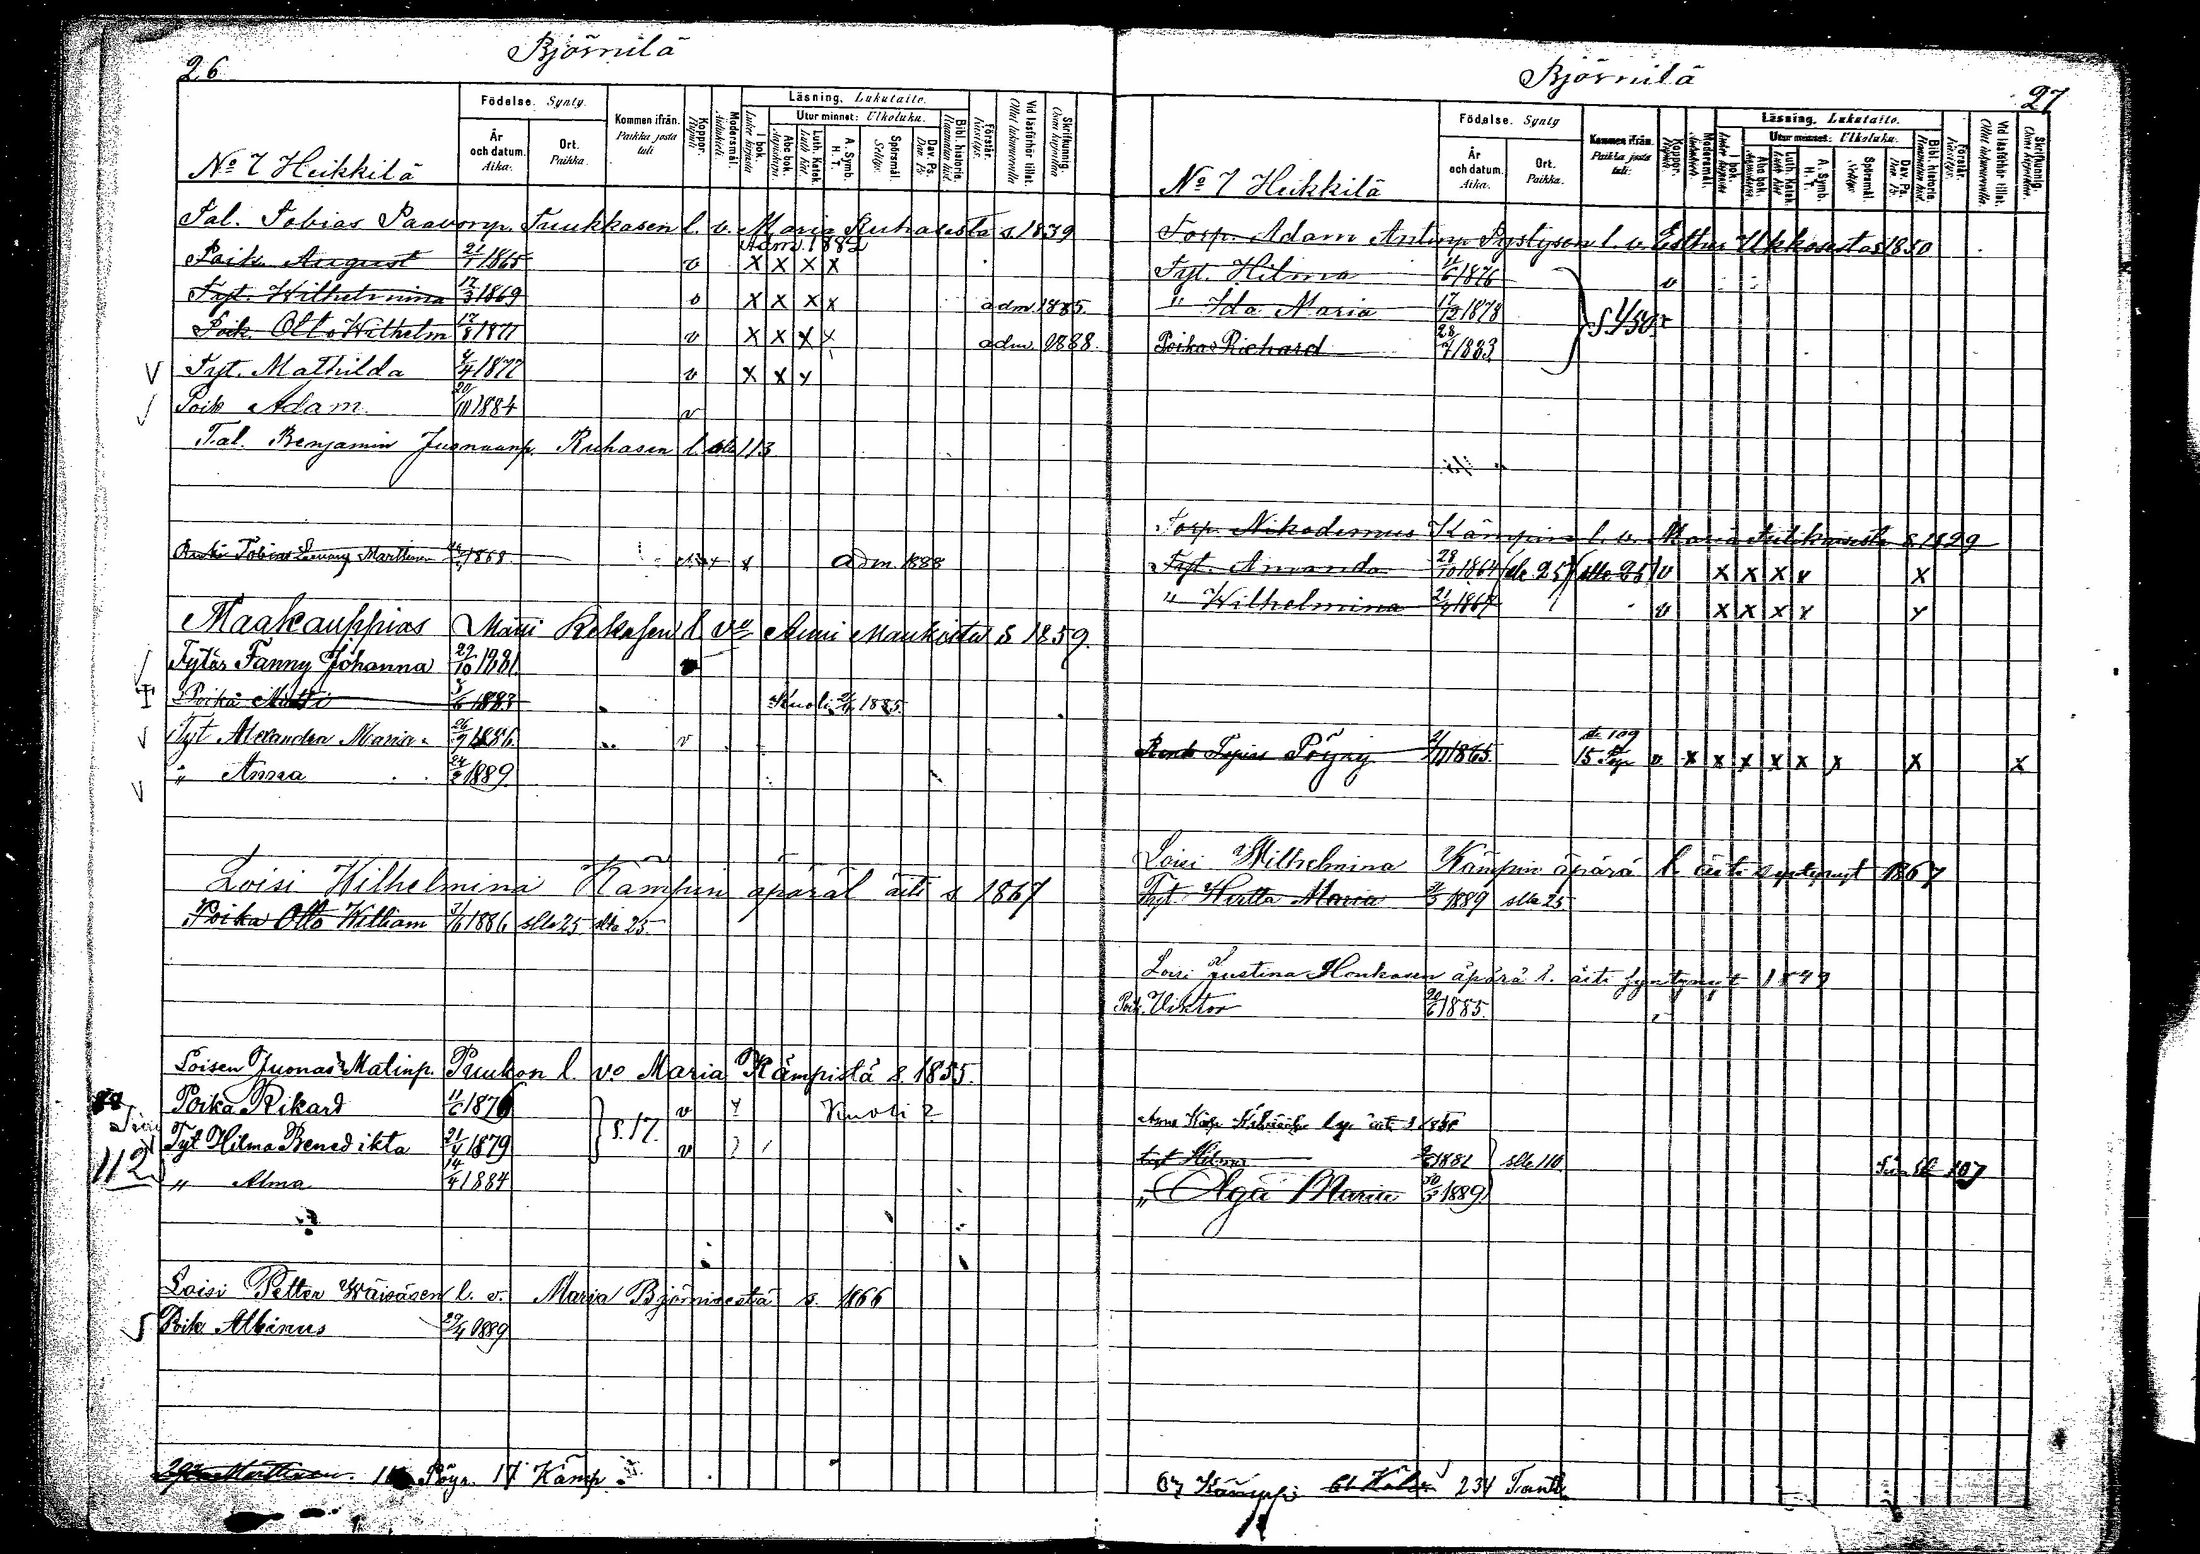 26
Björnilä
No 7 Heikkilä
Födelse. Synty.
År och datum. Aika.
Ort. Paikka.
Kommen ifrån. Paikka josta tuli
Koppor. Rupuli
Modersmål. Äidinkieli
Läsning. Lukutaito.
I bok. Luku kirjasta
Utur minnet: Ulkoluku.
Abc bok. Aapiskirja.
Luth. Katek. Luth. Kat.
A. Symb. H. T.
Spörsmål. Selitys.
Dav. Ps. Dav. Ps.
Bibl. historie. Raamatun hist.
Förstår. Käsitys.
Vid läsförhör tillst. Ollut lukuvuorolla
Skrifkunnig. Osaa kirjoittaa
Tal. Tobias Paavonp. Tuukkasen l. v. Maria Ruhasesta s. 1839
Adm. 1882
Poik. August 21/1 1865 v X X X X
Tyt. Wilhelmina 17/3 1869 v X X X X adm. 1885
Poik. Otto Wilhelm 17/8 1871 v X X X X adm. 1888.
V Tyt. Mathilda 4/4 1877 v X X X
Poik Adam 20/10 1884 v
Tal. Benjamin Juonaanp. Ruhasen l. 113
Renki Tobias Marttinen 1868 Adm. 1888
Maakauppias Matti Kekäsen l vo Anni Maukosta s 1859.
Tytär Fanny Johanna 29/10 1881.
Poika Matti 1883 Kuoli 1885.
Tyt Alexandra Maria 26/9 1886. v
" Anna 24/2 1889.
Loisi Wilhelmina Kämpin äpärä l äiti s 1867
Poika Otto William 1886 slla 25. slla 25.
Loisen Juonas Matinp. Puukon l. vo Maria Kämpistä s. 1855.
Poika Rikard 11/6 1876 v Kuoli ?
Tyt Hilma Benedikta 21/4 1879 S. 17. v
112
" Alma 14/4 1884
Loisi Petter Wäisäsen l. v. Maria Björnisestä s. 1866
Poik Albinus 29/4 1889
Pöyr. 17 Kämp.
Björnilä
27
No 7 Heikkilä
Födelse. Synty
År och datum. Aika.
Ort. Paikka.
Kommen ifrån. Paikka josta tuli:
Koppor. Rupuli
Modersmål. Äidinkieli
Läsning. Lukutaito.
I bok. Luku kirjasta
Utur minnet: Ulkoluku.
Abc bok. Aapiskirja.
Luth. Katek. Luth. Kat.
A. Symb. H. T.
Spörsmål. Selitys.
Dav. Ps. Dav. Ps.
Bibl. historie. Raamatun hist
Förstår. Käsitys.
Vid läsförhör tillst. Ollut lukuvuorolla.
Skrifkunnig. Osaa kirjoittaa
Torp. Adam Antinp. Pystysen l. v. Esther Ukkosesta s 1850
Tyt. Hilma 1876 v
" Ida Maria 17/12 1878
Poika Richard 28/7 1883
Torp. Nikodemus Kämpin l. v. Maria s. 1829
Tyt. Amanda 28/10 1864 slla 25 v X X X X X
" Wilhelmina 1867 v X X X X X
Renk Topias Pöyry 1865. 109 15 v. X X X X X X X X
Loisi Wilhelmina Kämpin äpärä l. äiti syntynyt 1867
Tyt Hertta Maria 1889 slla 25
Loisi Justina Honkasen äpärä l. äiti syntynyt 1849
Poik. Viktor 20/6 1885.
tyt Hilma 1881 slla 110
107
" Olga Maria 30/3 1889
67 Kämppi 234 Tantt.